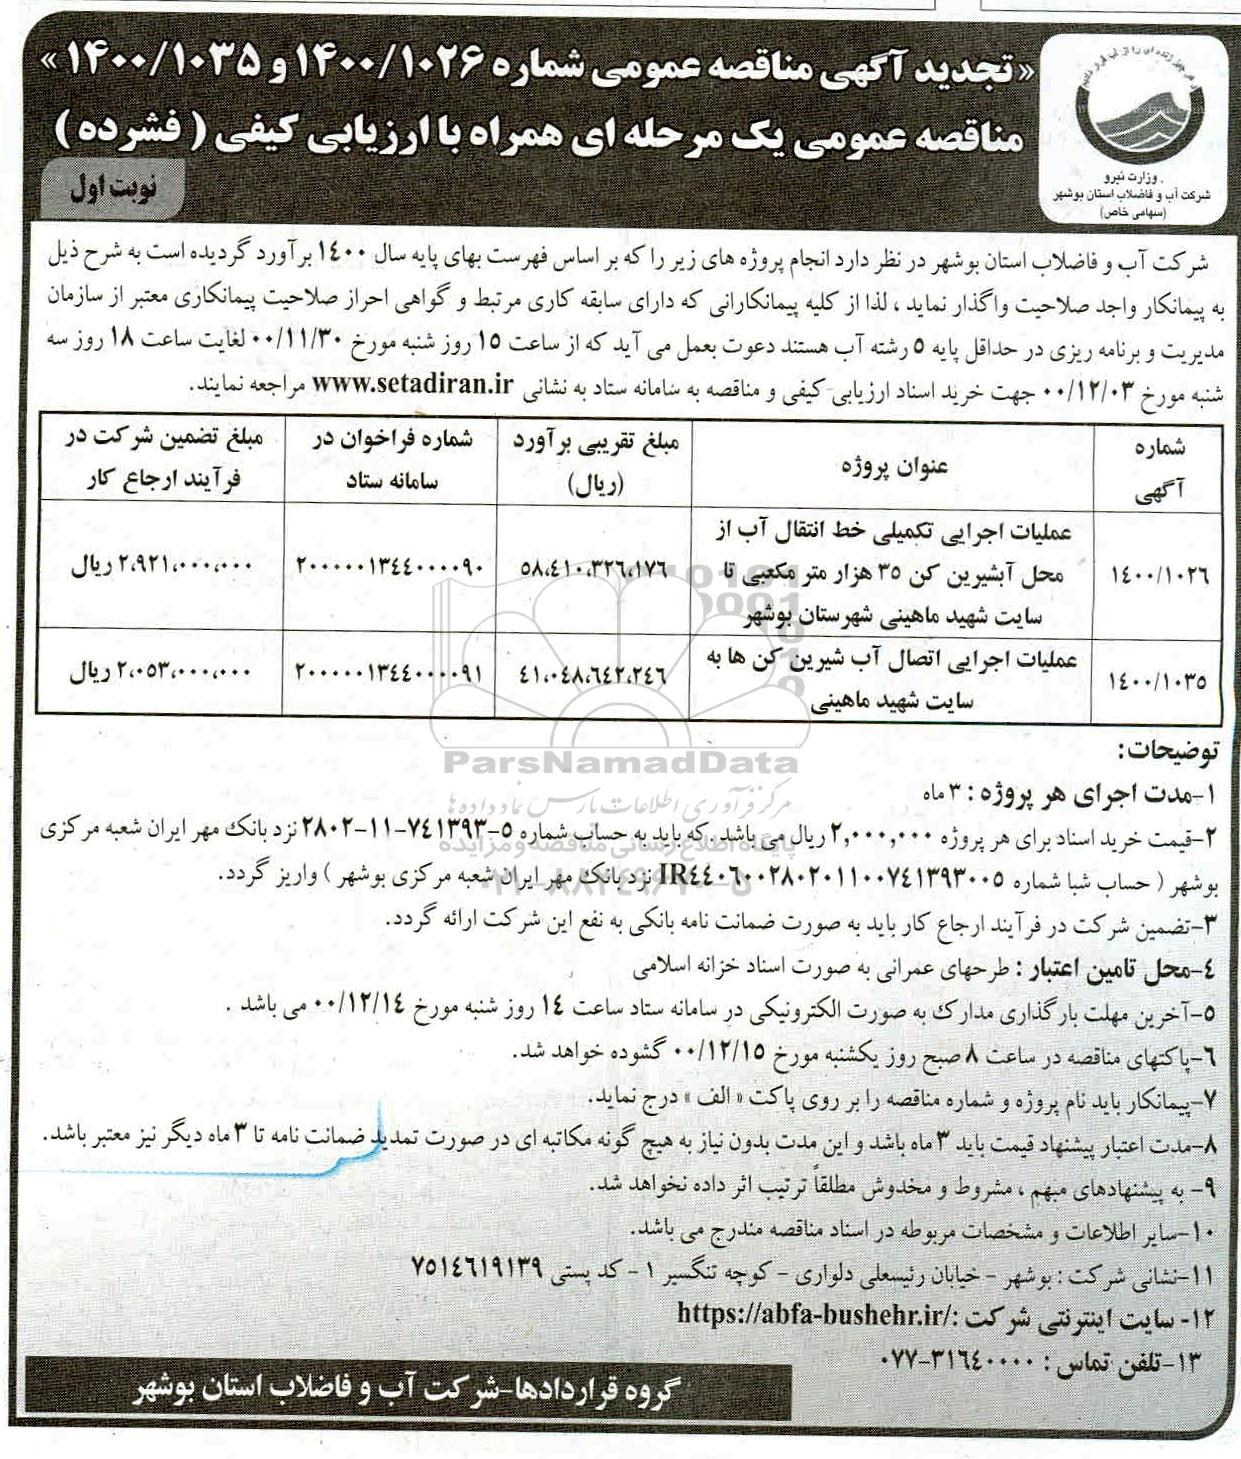 « تجدید آگهی مناقصه عمومی شماره ۱۴۰۰/۱۰۲۶ و ۱۴۰۰/۱۰۳۵ »
مناقصه عمومی یک مرحله ای همراه با ارزیابی کیفی ( فشرده )
نوبت اول
وزارت نیرو
شرکت آب و فاضلاب استان بوشهر
(سهامی خاص)
شرکت آب و فاضلاب استان بوشهر در نظر دارد انجام پروژه های زیر را که بر اساس فهرست بهای پایه سال ۱۴۰۰ برآورد گردیده است به شرح ذیل
به پیمانکار واجد صلاحیت واگذار نماید ، لذا از کلیه پیمانکارانی که دارای سابقه کاری مرتبط و گواهی احراز صلاحیت پیمانکاری معتبر از سازمان
مدیریت و برنامه ریزی در حداقل پایه ۵ رشته آب هستند دعوت بعمل می آید که از ساعت ۱۵ روز شنبه مورخ ۰۰/۱۱/۳۰ لغایت ساعت ۱۸ روز سه
شنبه مورخ ۰۰/۱۲/۰۳ جهت خرید اسناد ارزیابی-کیفی و مناقصه به سامانه ستاد به نشانی www.setadiran.ir مراجعه نمایند.
شماره آگهی | عنوان پروژه | مبلغ تقریبی برآورد (ریال) | شماره فراخوان در سامانه ستاد | مبلغ تضمین شرکت در فرآیند ارجاع کار
۱۴۰۰/۱۰۲۶ | عملیات اجرایی تکمیلی خط انتقال آب از محل آبشیرین کن ۳۵ هزار متر مکعبی تا سایت شهید ماهینی شهرستان بوشهر | ۵۸،۴۱۰،۳۲۶،۱۷۶ | ۲۰۰۰۰۰۱۳۴۴۰۰۰۰۹۰ | ۲،۹۲۱،۰۰۰،۰۰۰ ریال
۱۴۰۰/۱۰۳۵ | عملیات اجرایی اتصال آب شیرین کن ها به سایت شهید ماهینی | ۴۱،۰۴۸،۶۴۲،۲۴۶ | ۲۰۰۰۰۰۱۳۴۴۰۰۰۰۹۱ | ۲،۰۵۳،۰۰۰،۰۰۰ ریال
ParsNamadData
مرکز فرآوری اطلاعات پارس نماد داده ها
پایگاه اطلاع رسانی مناقصه و مزایده
توضیحات:
۱-مدت اجرای هر پروژه : ۳ ماه
۲-قیمت خرید اسناد برای هر پروژه ۲,۰۰۰,۰۰۰ ریال می باشد که باید به حساب شماره ۵-۷۴۱۳۹۳-۱۱-۲۸۰۲ نزد بانک مهر ایران شعبه مرکزی
بوشهر ( حساب شبا شماره IR۴۴۰۶۰۰۲۸۰۲۰۱۱۰۰۷۴۱۳۹۳۰۰۵ نزد بانک مهر ایران شعبه مرکزی بوشهر ) واریز گردد.
۳-تضمین شرکت در فرآیند ارجاع کار باید به صورت ضمانت نامه بانکی به نفع این شرکت ارائه گردد.
۴-محل تامین اعتبار : طرحهای عمرانی به صورت اسناد خزانه اسلامی
۵-آخرین مهلت بارگذاری مدارک به صورت الکترونیکی در سامانه ستاد ساعت ۱۴ روز شنبه مورخ ۰۰/۱۲/۱۴ می باشد .
۶-پاکتهای مناقصه در ساعت ۸ صبح روز یکشنبه مورخ ۰۰/۱۲/۱۵ گشوده خواهد شد.
۷-پیمانکار باید نام پروژه و شماره مناقصه را بر روی پاکت « الف » درج نماید.
۸-مدت اعتبار پیشنهاد قیمت باید ۳ ماه باشد و این مدت بدون نیاز به هیچ گونه مکاتبه ای در صورت تمدید ضمانت نامه تا ۳ ماه دیگر نیز معتبر باشد.
۹- به پیشنهادهای مبهم ، مشروط و مخدوش مطلقاً ترتیب اثر داده نخواهد شد.
۱۰-سایر اطلاعات و مشخصات مربوطه در اسناد مناقصه مندرج می باشد.
۱۱-نشانی شرکت : بوشهر - خیابان رئیسعلی دلواری - کوچه تنگسیر ۱ - کد پستی ۷۵۱۴۶۱۹۱۳۹
۱۲- سایت اینترنتی شرکت :https://abfa-bushehr.ir/
۱۳-تلفن تماس : ۳۱۶۴۰۰۰۰-۰۷۷
گروه قراردادها-شرکت آب و فاضلاب استان بوشهر